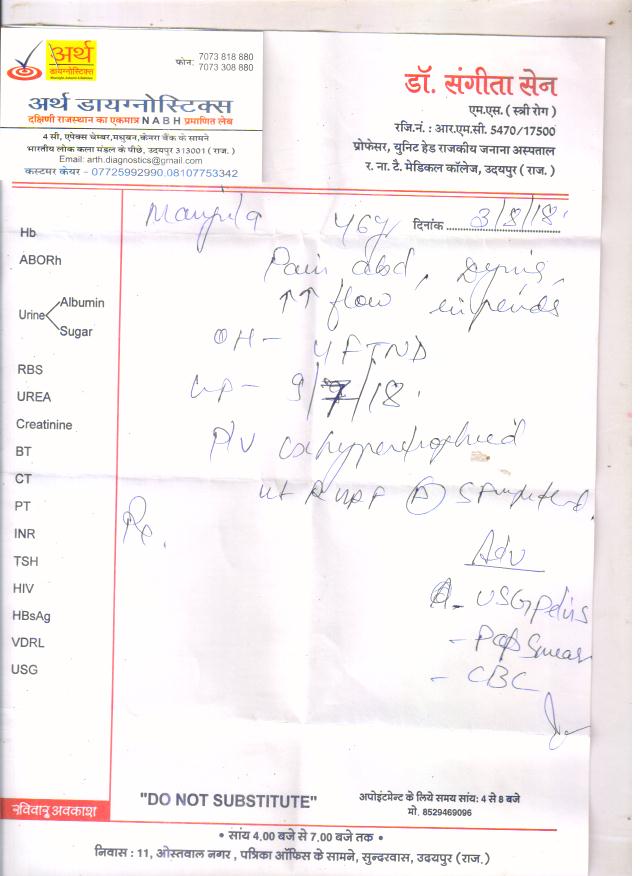 अर्थ
डायग्नोस्टिक्स
फोन: 7073 818 880
7073 308 880
अर्थ डायग्नोस्टिक्स
दक्षिणी राजस्थान का एकमात्र N A B H प्रमाणित लेब
4 सी, एपेक्स चेम्बर,मधुबन,केनरा बैंक के सामने
भारतीय लोक कला मंडल के पीछे, उदयपुर 313001 ( राज. )
Email: arth.diagnostics@gmail.com
कस्टमर केयर - 07725992990,08107753342
डॉ. संगीता सेन
एम.एस. ( स्त्री रोग )
रजि.नं. : आर.एम.सी. 5470/17500
प्रोफेसर, युनिट हेड राजकीय जनाना अस्पताल
र. ना. टै. मेडिकल कॉलेज, उदयपुर ( राज. )
46y दिनांक 3/8/18
Pain abd,
↑↑ flow
OH -
9/7/18
P/V cx hypertrophied
Rx
Adv
- USG Pelvis
- Pap Smear
- CBC
Hb
ABORh
Urine Albumin
Sugar
RBS
UREA
Creatinine
BT
CT
PT
INR
TSH
HIV
HBsAg
VDRL
USG
रविवार अवकाश
"DO NOT SUBSTITUTE"
अपोइंटमेण्ट के लिये समय सांय: 4 से 8 बजे
मो. 8529469096
• सांय 4.00 बजे से 7.00 बजे तक •
निवास : 11, ओस्तवाल नगर , पत्रिका ऑफिस के सामने, सुन्दरवास, उदयपुर (राज.)